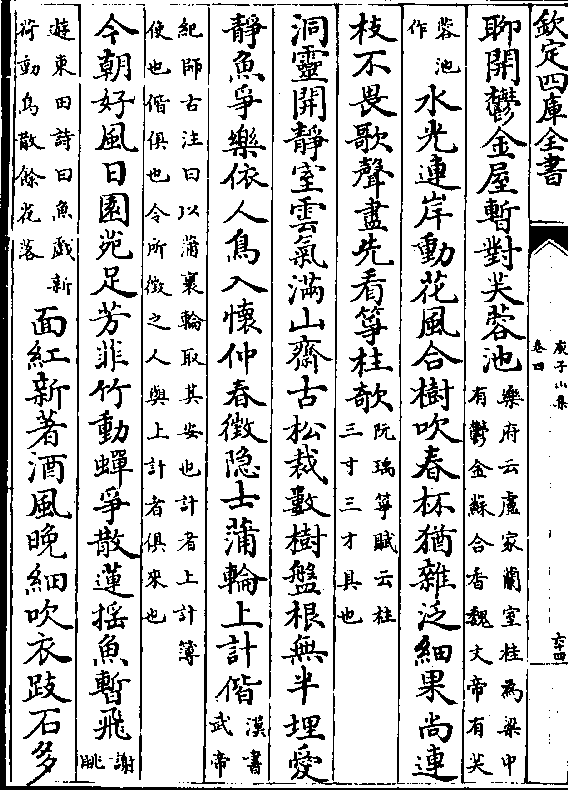 欽定四庫全書
庾子山集
卷四
六四
聊開鬱金屋暫對芙蓉池樂府云盧家蘭室桂為梁中
有鬱金蘇合香魏文帝有芙
蓉池
作水光連岸動花風合樹吹春杯猶雜泛細果尚連
枝不畏歌聲盡先看箏柱欹阮瑀箏賦云柱
三寸三才具也
洞靈開靜室雲氣滿山齋古松裁數樹盤根無半埋愛
靜魚爭樂依人鳥入懷仲春徵隱士蒲輪上計偕漢書
武帝
紀師古注曰以蒲裹輪取其安也計者上計簿
使也偕俱也令所徵之人與上計者俱來也
今朝好風日園苑足芳菲竹動蟬爭散蓮搖魚暫飛謝
眺
遊東田詩曰魚戲新
荷動鳥散餘花落面紅新著酒風晚細吹衣跂石多